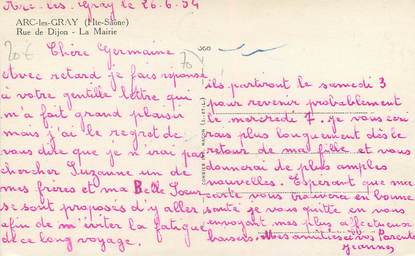 Arc-les-Gray le 26.6.54
ARC-les-GRAY (Hte-Saône)
Rue de Dijon - La Mairie
20f
70
360
Chère Germaine
Avec retard je fais réponse
à votre gentille lettre qui
m'a fait grand plaisir
mais j'ai le regret de
vous dire que je n'irai pas
chercher Suzanne un de
mes frères et ma Belle Sœur
se sont proposés d'y aller
afin de m'éviter la fatigue
de ce long voyage.
ils partiront le samedi 3
pour revenir probablement
le mercredi 7. je vous écri
rais plus longuement dès le
retour de ma fille et vous
donnerai de plus amples
nouvelles. Espérant que ma
carte vous trouvera en bonne
santé je vous quitte en vous
envoyant mes plus affectueux
baisers. Mes amitiés à vos Parents
Jeanne